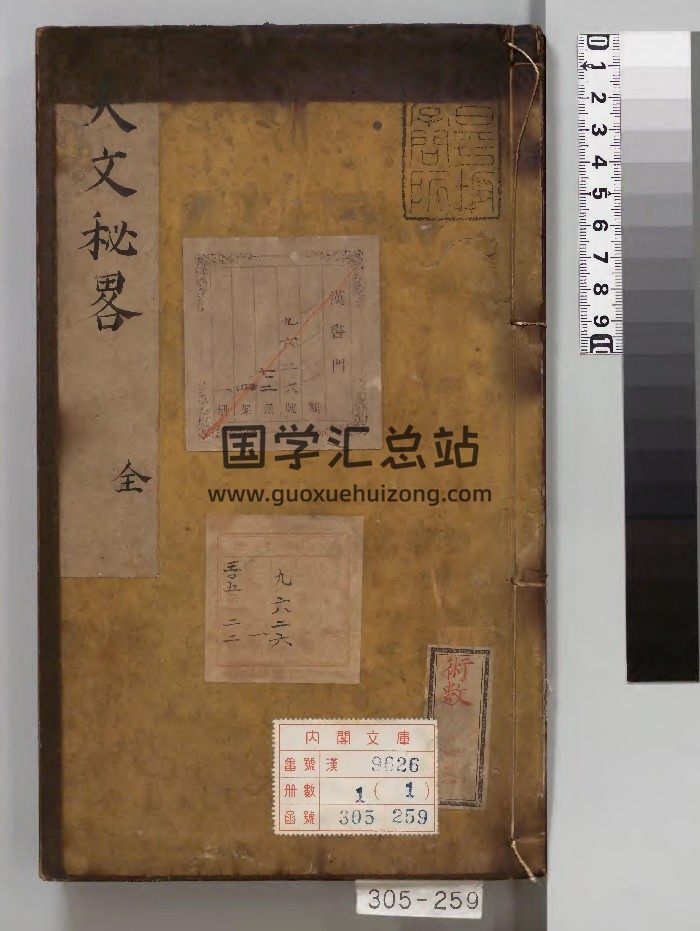 天文秘畧
全
漢醫門
九六二六
七二
類
號
函
架
冊
国学汇总站
www.guoxuehuizong.com
九六二六
三〇五
二二
一
術數
内閣文庫
番號 漢 9626
冊數 1 (1)
函號 305 259
305-259
0 1 2 3 4 5 6 7 8 9 10